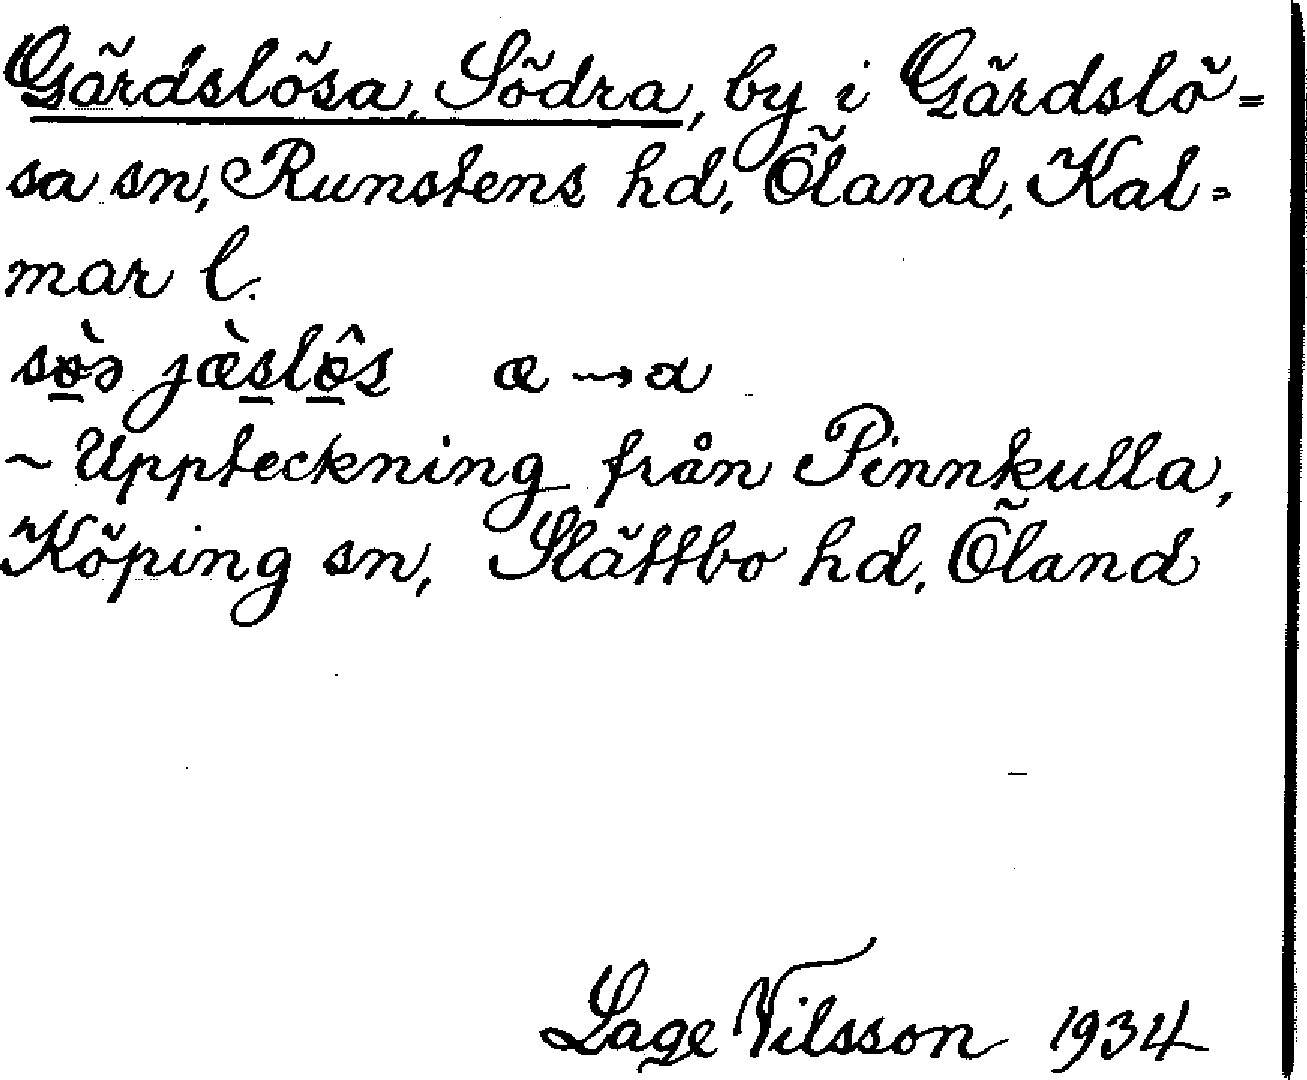 Gärdslösa, Södra, by i Gärdslö=
sa sn, Runstens hd, Öland, Kal=
mar l.
sø̀ə jæ̀slø̂s æ → a
~ Uppteckning från Pinnkulla,
Köping sn, Slättbo hd, Öland
Lage Nilsson 1934